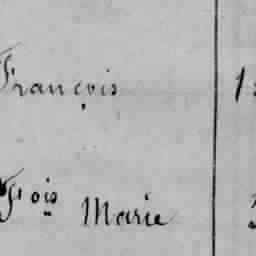 François
Fois Marie